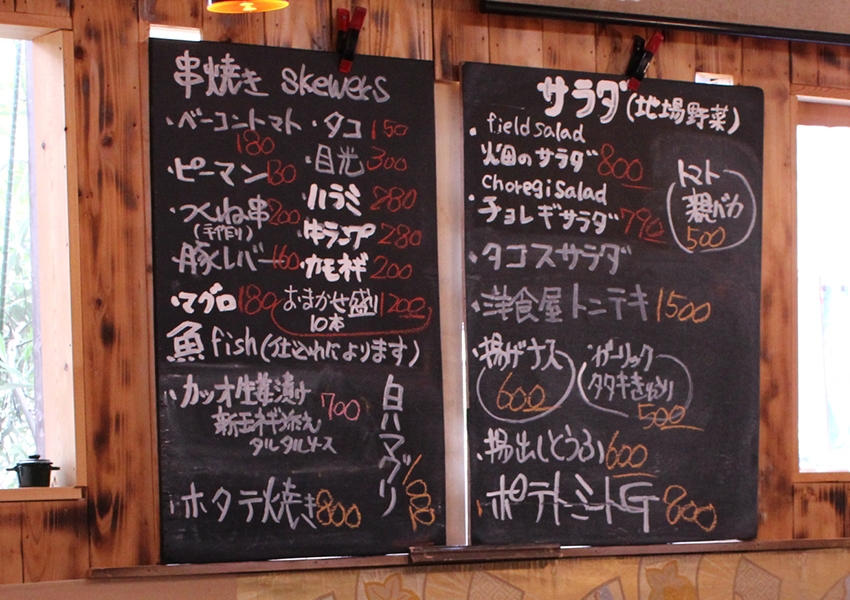 串焼き skewers
・ベーコントマト 180
・タコ 150
・ピーマン 130
・目光 300
・つくね串 200
(手作り)
・ハラミ 280
・牛ランプ 280
・豚レバー 160
・カモネギ 200
・マグロ 180
おまかせ盛り 1200
10本
魚 fish (仕込れによります)
・カツオ生姜漬け 700
新玉ネギ
タルタルソース
白ハマグリ
・ホタテ焼き 800
サラダ (地場野菜)
field salad
・畑のサラダ 800
choregi salad
・チョレギサラダ 790
トマト
親バカ
500
・タコスサラダ
・洋食屋トンテキ 1500
・揚げナス
600
・ガーリック
タタキきゅうり
500
・揚出しとうふ 600
・ポテトミートG 800